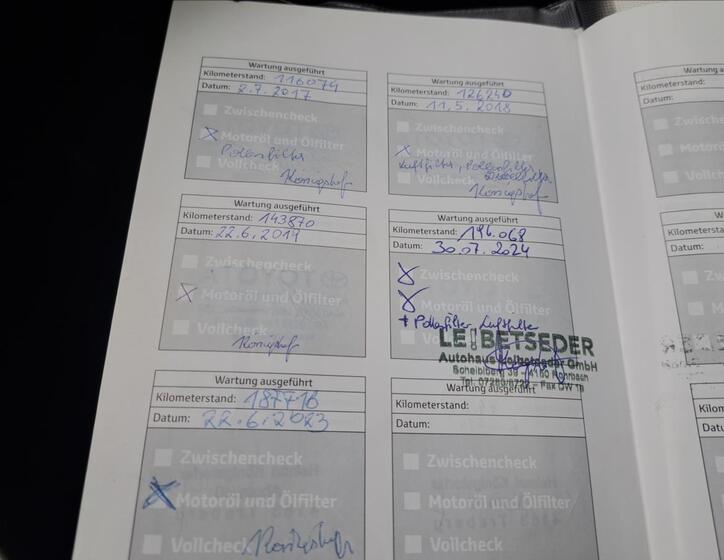 Wartung ausgeführt
Kilometerstand: 116079
Datum: 2.7.2017
Zwischencheck
Motoröl und Ölfilter
Pollenfilter
Vollcheck
Königshof
Wartung ausgeführt
Kilometerstand: 126240
Datum: 11.5.2018
Zwischencheck
Motoröl und Ölfilter
Luftfilter, Pollenfilter
Vollcheck
Königshof
Wartung ausgeführt
Kilometerstand: 143870
Datum: 22.6.2019
Zwischencheck
Motoröl und Ölfilter
Vollcheck
Königshof
Wartung ausgeführt
Kilometerstand: 196.068
Datum: 30.07.2024
Zwischencheck
Motoröl und Ölfilter
+ Pollenfilter, Luftfilter
LEIBETSEDER
Autohaus Leibetseder GmbH
Scheiblberg 39 - 4160 Rohrbach
Wartung ausgeführt
Kilometerstand: 187716
Datum: 22.6.2023
Zwischencheck
Motoröl und Ölfilter
Vollcheck
Königshof
Wartung ausgeführt
Kilometerstand:
Datum:
Zwischencheck
Motoröl und Ölfilter
Vollcheck
Wartung
Kilometerstand:
Datum:
Zwischencheck
Motoröl und
Vollcheck
Wartung
Kilometersta
Datum: